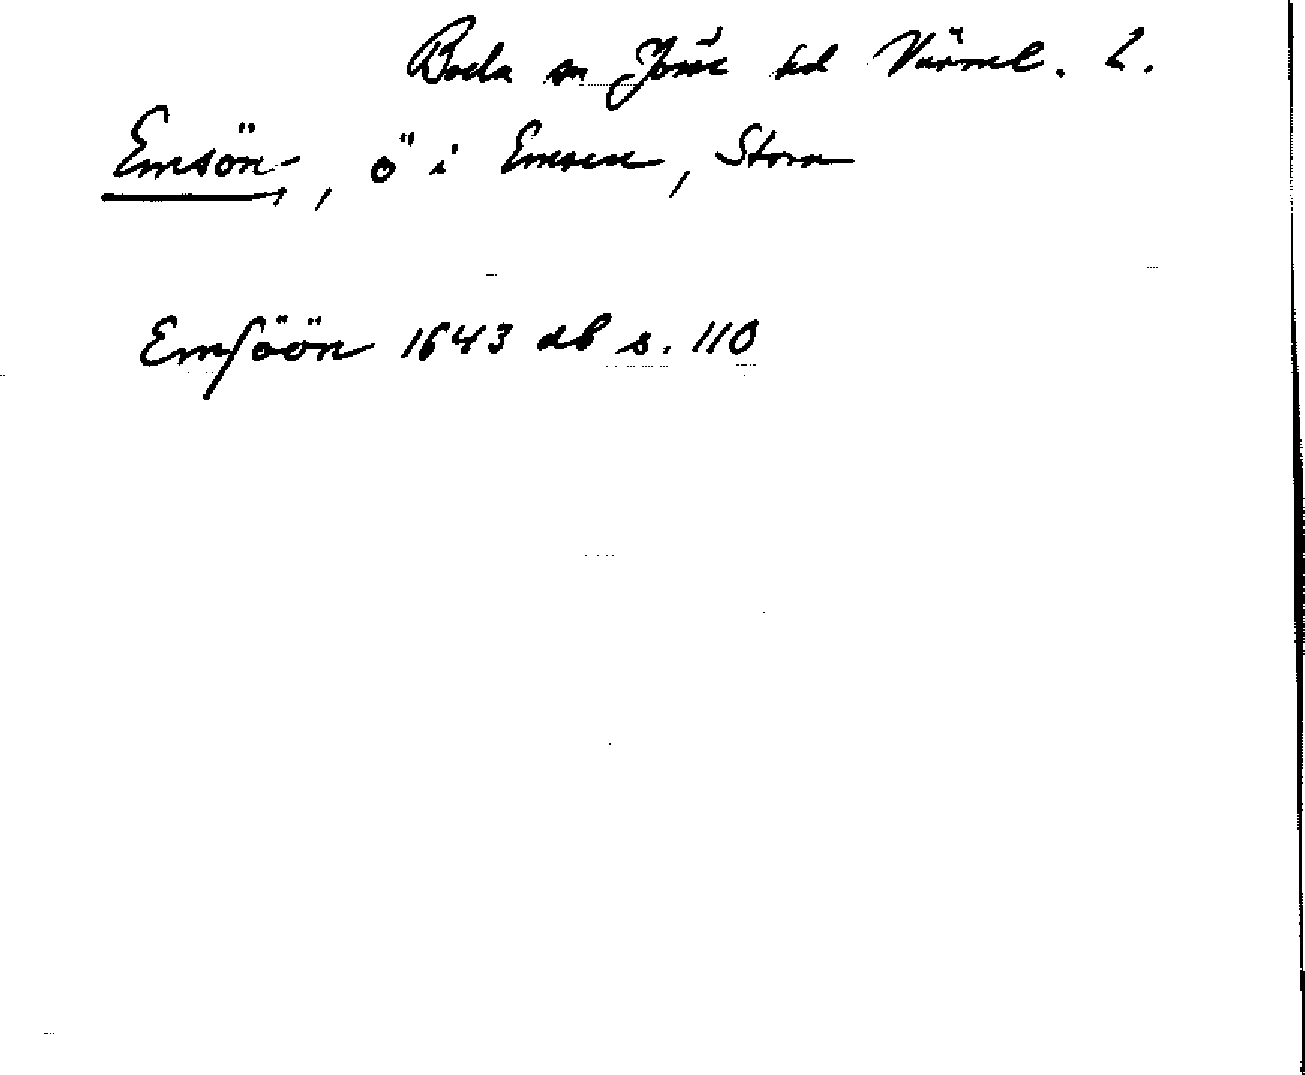 Boda sn Jösse hd Värml. l.
Emsön, ö i Emsen, Stora
Emsöön 1643 db s. 110